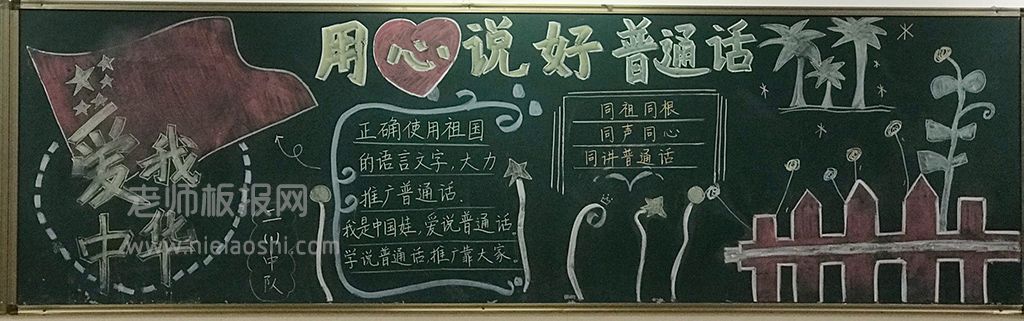 用心说好普通话
爱我
中华
老师板报网
www.nielaoshi.com
正确使用祖国
的语言文字,大力
推广普通话.
我是中国娃,爱说普通话,
学说普通话,推广靠大家.
同祖同根
同声同心
同讲普通话
中队